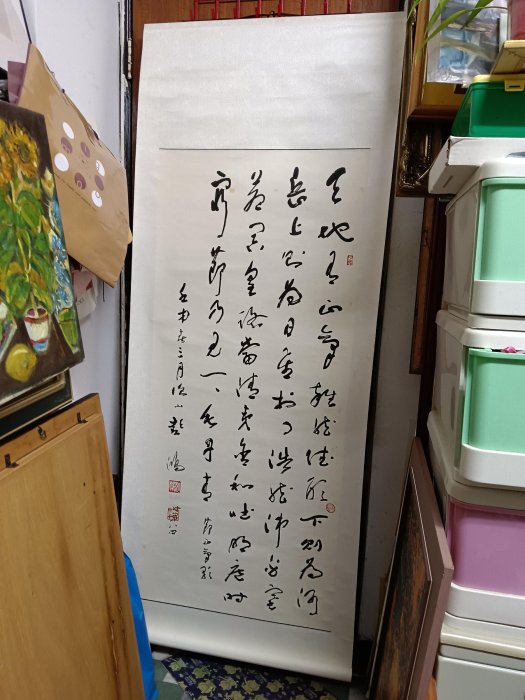 天地有正氣雜然賦形下則為河
岳上則為日星於人曰浩然沛乎塞
蒼冥皇路當清夷含和吐明庭時
窮節乃見一一垂丹青 正氣歌
三月 山彭鴻